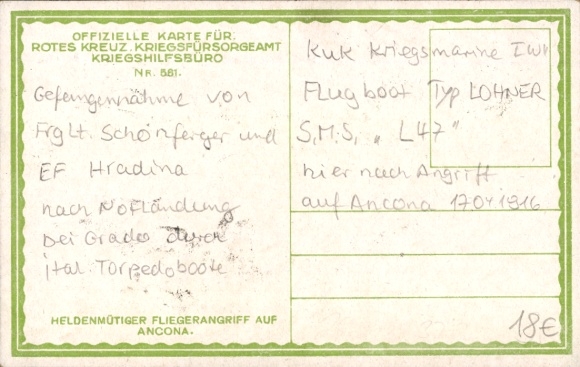 OFFIZIELLE KARTE FÜR:
ROTES KREUZ, KRIEGSFÜRSORGEAMT
KRIEGSHILFSBÜRO
NR. 561.
Gefangennahme von
Frglt. Schönferger und
EF Hradina
nach Notlandung
bei Grado durch
ital. Torpedoboote
HELDENMÜTIGER FLIEGERANGRIFF AUF
ANCONA.
KuK Kriegsmarine
Flugboot Typ LOHNER
S.M.S. „ L47"
hier nach Angriff
auf Ancona 17041916
18€